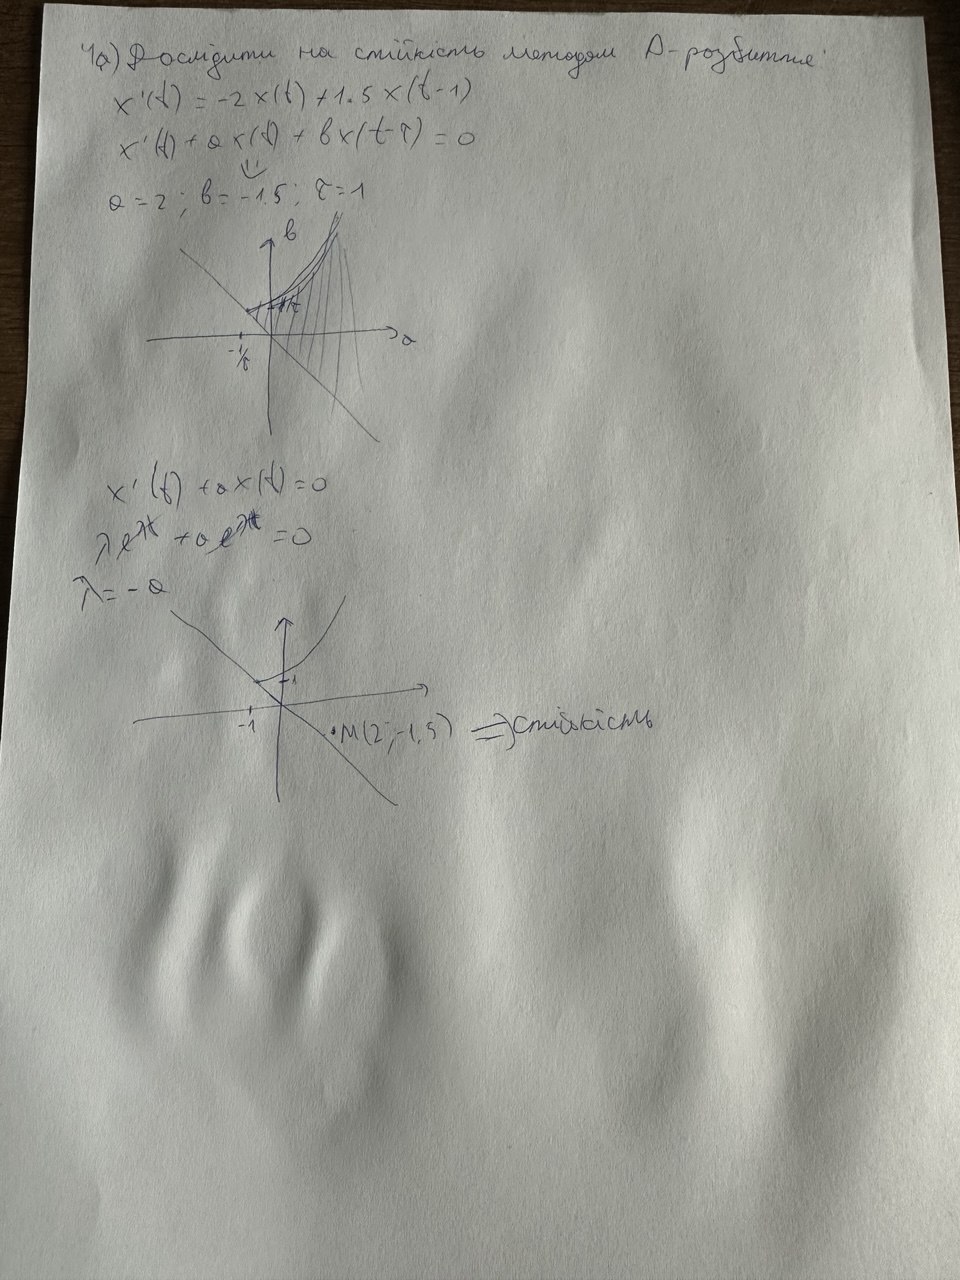 4а) Дослідити на стійкість методом D-розбиття:
x'(t) = -2x(t) + 1.5x(t-1)
x'(t) + ax(t) + bx(t-τ) = 0
a = 2; b = -1.5; τ = 1
b
1/τ
a
-1/τ
x'(t) + ax(t) = 0
λe^λt + ae^λt = 0
λ = -a
1
-1
M(2;-1,5) ⇒ стійкість